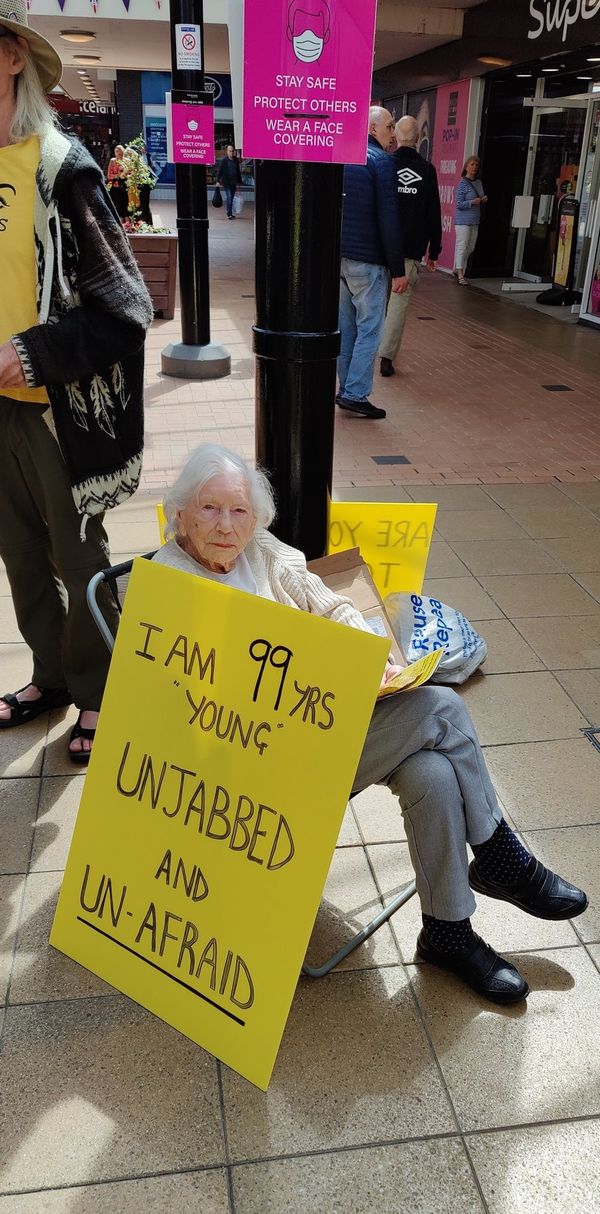 Supe
NO SMOKING
STAY SAFE
PROTECT OTHERS
WEAR A FACE
COVERING
STAY SAFE
PROTECT OTHERS
WEAR A FACE
COVERING
Iceland
umbro
POP-IN
S
ARE YO
T
Reuse
Repea
I AM 99 YRS
"YOUNG"
UNJABBED
AND
UN-AFRAID